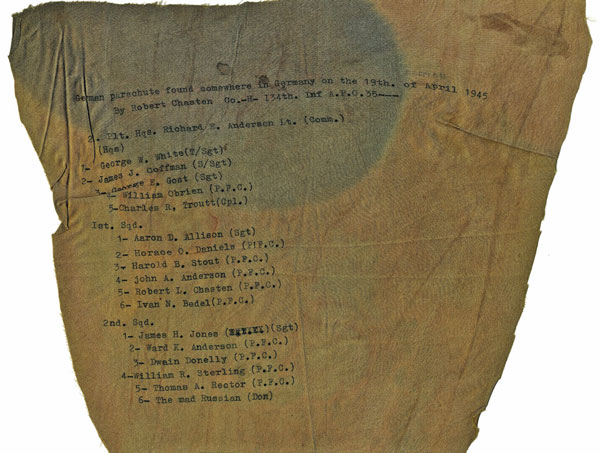 German parachute found somewhere in Germany on the 19th. of April 1945
By Robert Chasten Co.-H- 134th. Inf A.P.O.35----
2. Plt. Hqs. Richard E. Anderson Lt. (Comm.)
(Hqs)
1- George W. White(T/Sgt)
2- James J. Coffman (S/Sgt)
3- George E. Gost (Sgt)
4- William Obrien (P.F.C.)
5-Charles R. Troutt(Cpl.)
1st. Sqd.
1- Aaron D. Allison (Sgt)
2- Horace O. Daniels (P.F.C.)
3- Harold B. Stout (P.F.C.)
4- john A. Anderson (P.F.C.)
5- Robert L. Chasten (P.F.C.)
6- Ivan N. Bedel(P.F.C.)
2nd. Sqd.
1- James H. Jones (Sgt)
2- Ward K. Anderson (P.F.C.)
3- Dwain Donelly (P.F.C.)
4-William R. Sterling (P.F.C.)
5- Thomas A. Rector (P.F.C.)
6- The mad Russian (Dom)